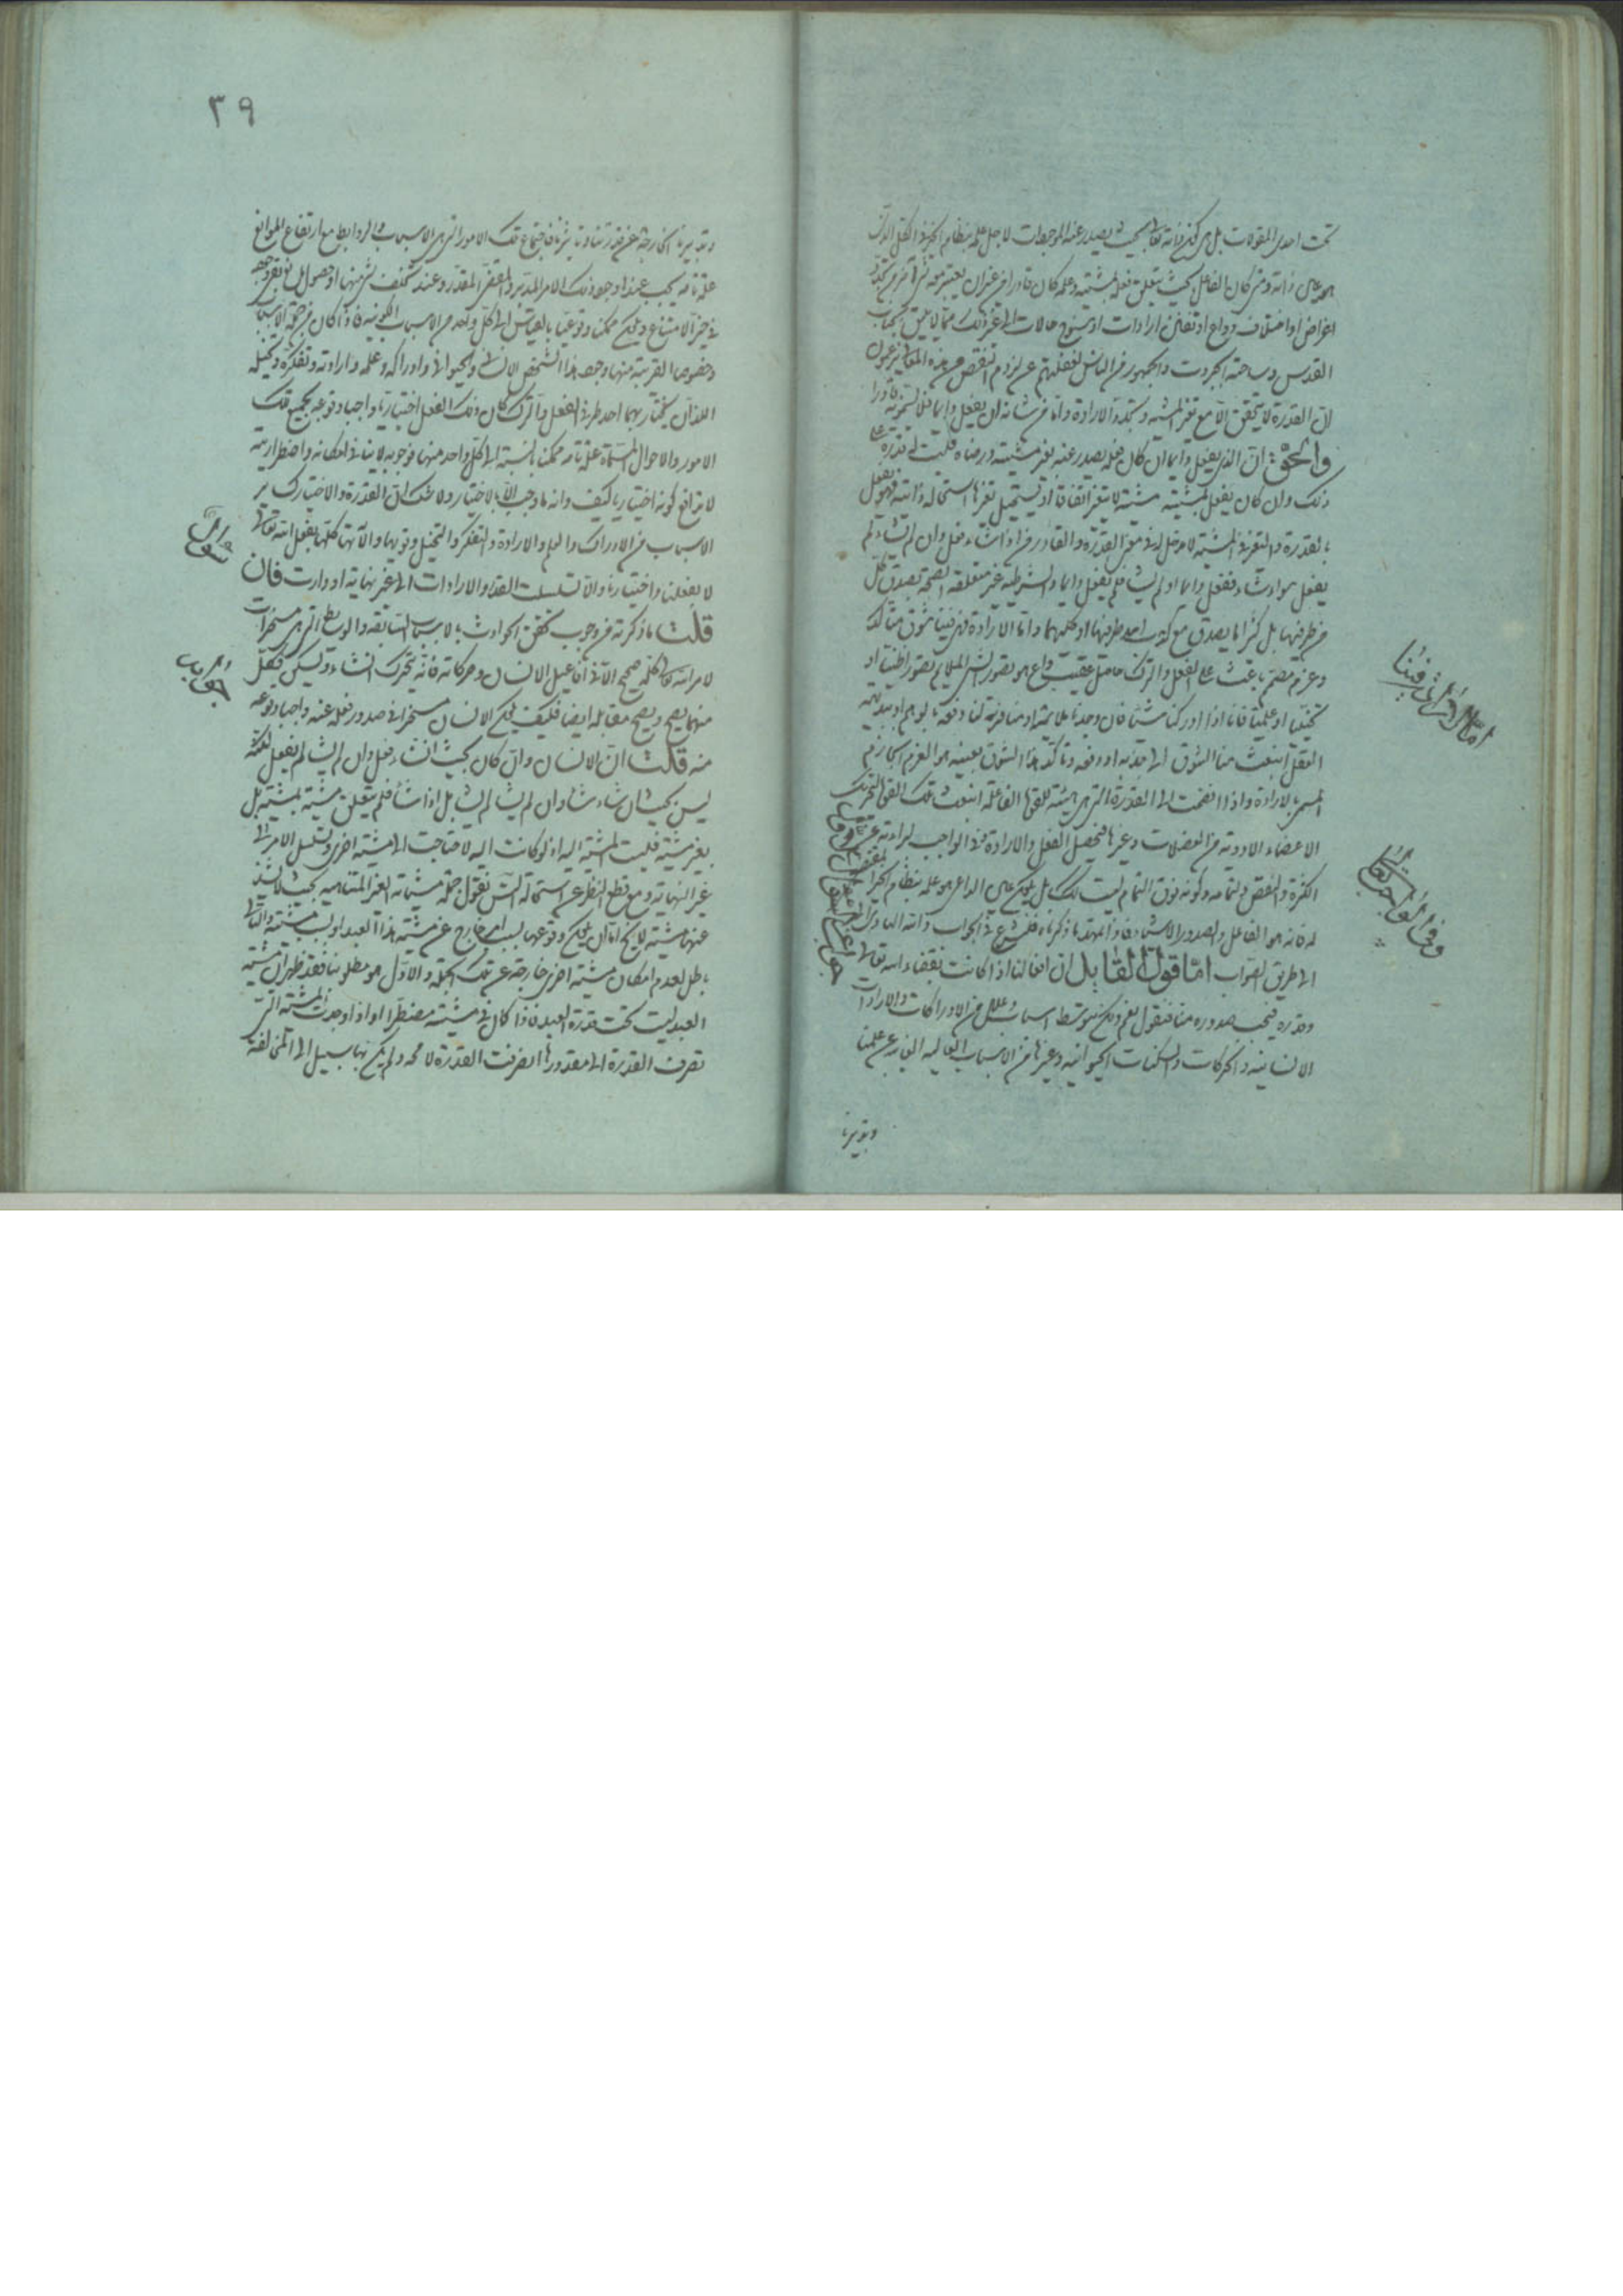 تحت احدى المقولات بل هى كون ذاته تعالى بحيث يصدر عنه الموجودات لاجل علمه بنظام الخير
ذاته ومتى كان الفاعل بحيث يتعلق فعله بمشيته وعلمه كان قادرا من غير ان يعتبر معه شى آخر من تجدد
اغراض او اختلاف دواع او تفنن ارادات او سنوح حالات الى غير ذلك مما لا يليق بجناب
القدس وساحة الجبروت والجمهور من الناس لغفلتهم عن لزوم النقص من هذه المعانى يزعمون
ان القدرة لا يتحقق الا مع تغير المشية وتجدد الارادة واما من شانه ان يفعل دايما فلا يسمونه قادرا
والحق ان الذى يفعل دايما ان كان فعله يصدر عنه بغير مشيته ورضاه فليست له قدرة على
ذلك وان كان يفعل بمشيته مشية لا يتغير اتفاقا او يستحيل تغيرها استحالة ذاتية فهو يفعل
بالقدرة والتغير فى المشية لا مدخل له فى معنى القدرة والقادر من اذا شاء فعل وان لم يشاء لم
يفعل سواء شاء ففعل دايما او لم يشا فلم يفعل دايما والشرطية غير متعلقة الصحة بصدق كل
من طرفيها بل كثيرا ما يصدق مع كذب احد طرفيها او كليهما واما الارادة فهى فينا شوق متاكد
وعزم مصمم باعث على الفعل والترك حاصل عقيب داع هو تصور الشى الملايم تصورا ظنيا او
تخييليا او علميا فانا اذا ادركنا شيئا فان وجدنا ملايمته او منافرته لنا دفعة بالوهم او ببديهة
العقل انبعث منا الشوق الى جذبه او دفعه وتاكد هذا الشوق بعينه هو العزم الجازم
المسمى بالارادة واذا انضمت الى القدرة التى هى هيئة للقوة الفاعلة انبعث تلك القوة لتحريك
الاعضاء الادوية من العضلات وغيرها فيحصل الفعل والارادة فى الواجب لبراءته عن
الكثرة والنقص ولتمامه وكونه فوق التمام ليست كذلك بل يكون عين الداعى وهو علمه بنظام الخير
له فانه هو الفاعل والصدور الاشياء فاذا تمهد ما ذكرناه فلنشرع فى الجواب والله الهادى
الى طريق الصواب اما قول القايل ان افعالنا اذا كانت بقضاء الله تعالى
وقدره فيجب صدوره منا فنقول نعم ولكن بتوسط اسباب وعلل من الادراكات والارادات
الانسانية والحركات والسكنات الحيوانية وغيرها من الاسباب العالية الغايبة عن علمنا
وتدبيرنا
اما الارادة فينا
وفى الواجب تعالى
٣٩
وتدبيرنا الخارجة عن قدرتنا وتاثيرنا فاجتماع تلك الامور التى هى الاسباب والروابط مع ارتفاع الموانع
علة تامة يجب عندها وجود ذلك الامر المدبر والمقضى المقدر وعند تخلف شى منها او حصول مانع
فى حيز الامتناع ويكون ممكنا وقوعيا بالقياس الى كل واحد من الاسباب الكونية فاذا كان من جملة الاسباب
وخصوصا القريبة منها وجود هذا الشخص الانسانى والحيوانى وادراكه وعلمه وارادته وتفكره وتخيله
اللذان يختار بهما احد طرفى الفعل والترك كان ذلك الفعل اختياريا واجبا وقوعه بجميع تلك
الامور والاحوال المسماة علة تامة ممكنا بالنسبة الى كل واحد منها فوجوبه لا ينافى امكانه واضطراريته
لا يدافع كونه اختياريا كيف وانه ما وجب الا بالاختيار ولا شك ان القدرة والاختيار كساير
الاسباب من الادراك والعلم والارادة والتفكر والتخيل وقويها وآلاتها كلها بفعل الله تعالى
لا بفعلنا واختيارنا والا تسلسلت القدر والارادات الى غير نهاية او دارت فان
قلت ما ذكرته من وجوب تحقق الحوادث بالاسباب السابقة والوسايط التى هى مسخرات
لامر الله تعالى كله صحيح الا فى افاعيل الانسان وحركاته فانه يتحرك ان شاء ويسكن فكل
منهما يصح ويصح مقابله ايضا فكيف يكون الانسان مسخرا فى صدور فعله عنه واجبا وقوعه
منه قلت ان الانسان وان كان بحيث ان شاء فعل وان لم يشا لم يفعل لكنه
ليس بحيث ان شاء شاء وان لم يشا لم يشا بل اذا شاء فلم يتعلق مشيته بمشيته بل
بغير مشيته فليست المشية اليه اذ لو كانت اليه لاحتاجت الى مشية اخرى وتسلسل الامر الى
غير النهاية ومع قطع النظر عن استحالة التس نقول جملة مشياته الغير المتناهية بحيث لا يشذ
عنها مشية لا يخ اما ان يكون وقوعها بسبب امر خارج عن مشية هذا العبد او بسبب مشيته والثانى
باطل لعدم امكان مشية اخرى خارجة عن تلك الجملة والاول هو مطلوبنا فقد ظهر ان مشية
العبد ليست تحت قدرة العبد فاذا كان فى مشيته مضطرا او اذا وجدت المشية التى
تصرف القدرة الى مقدورها انصرفت القدرة لا محه ولم يكن لها سبيل الى المخالفة
سؤال
الجواب